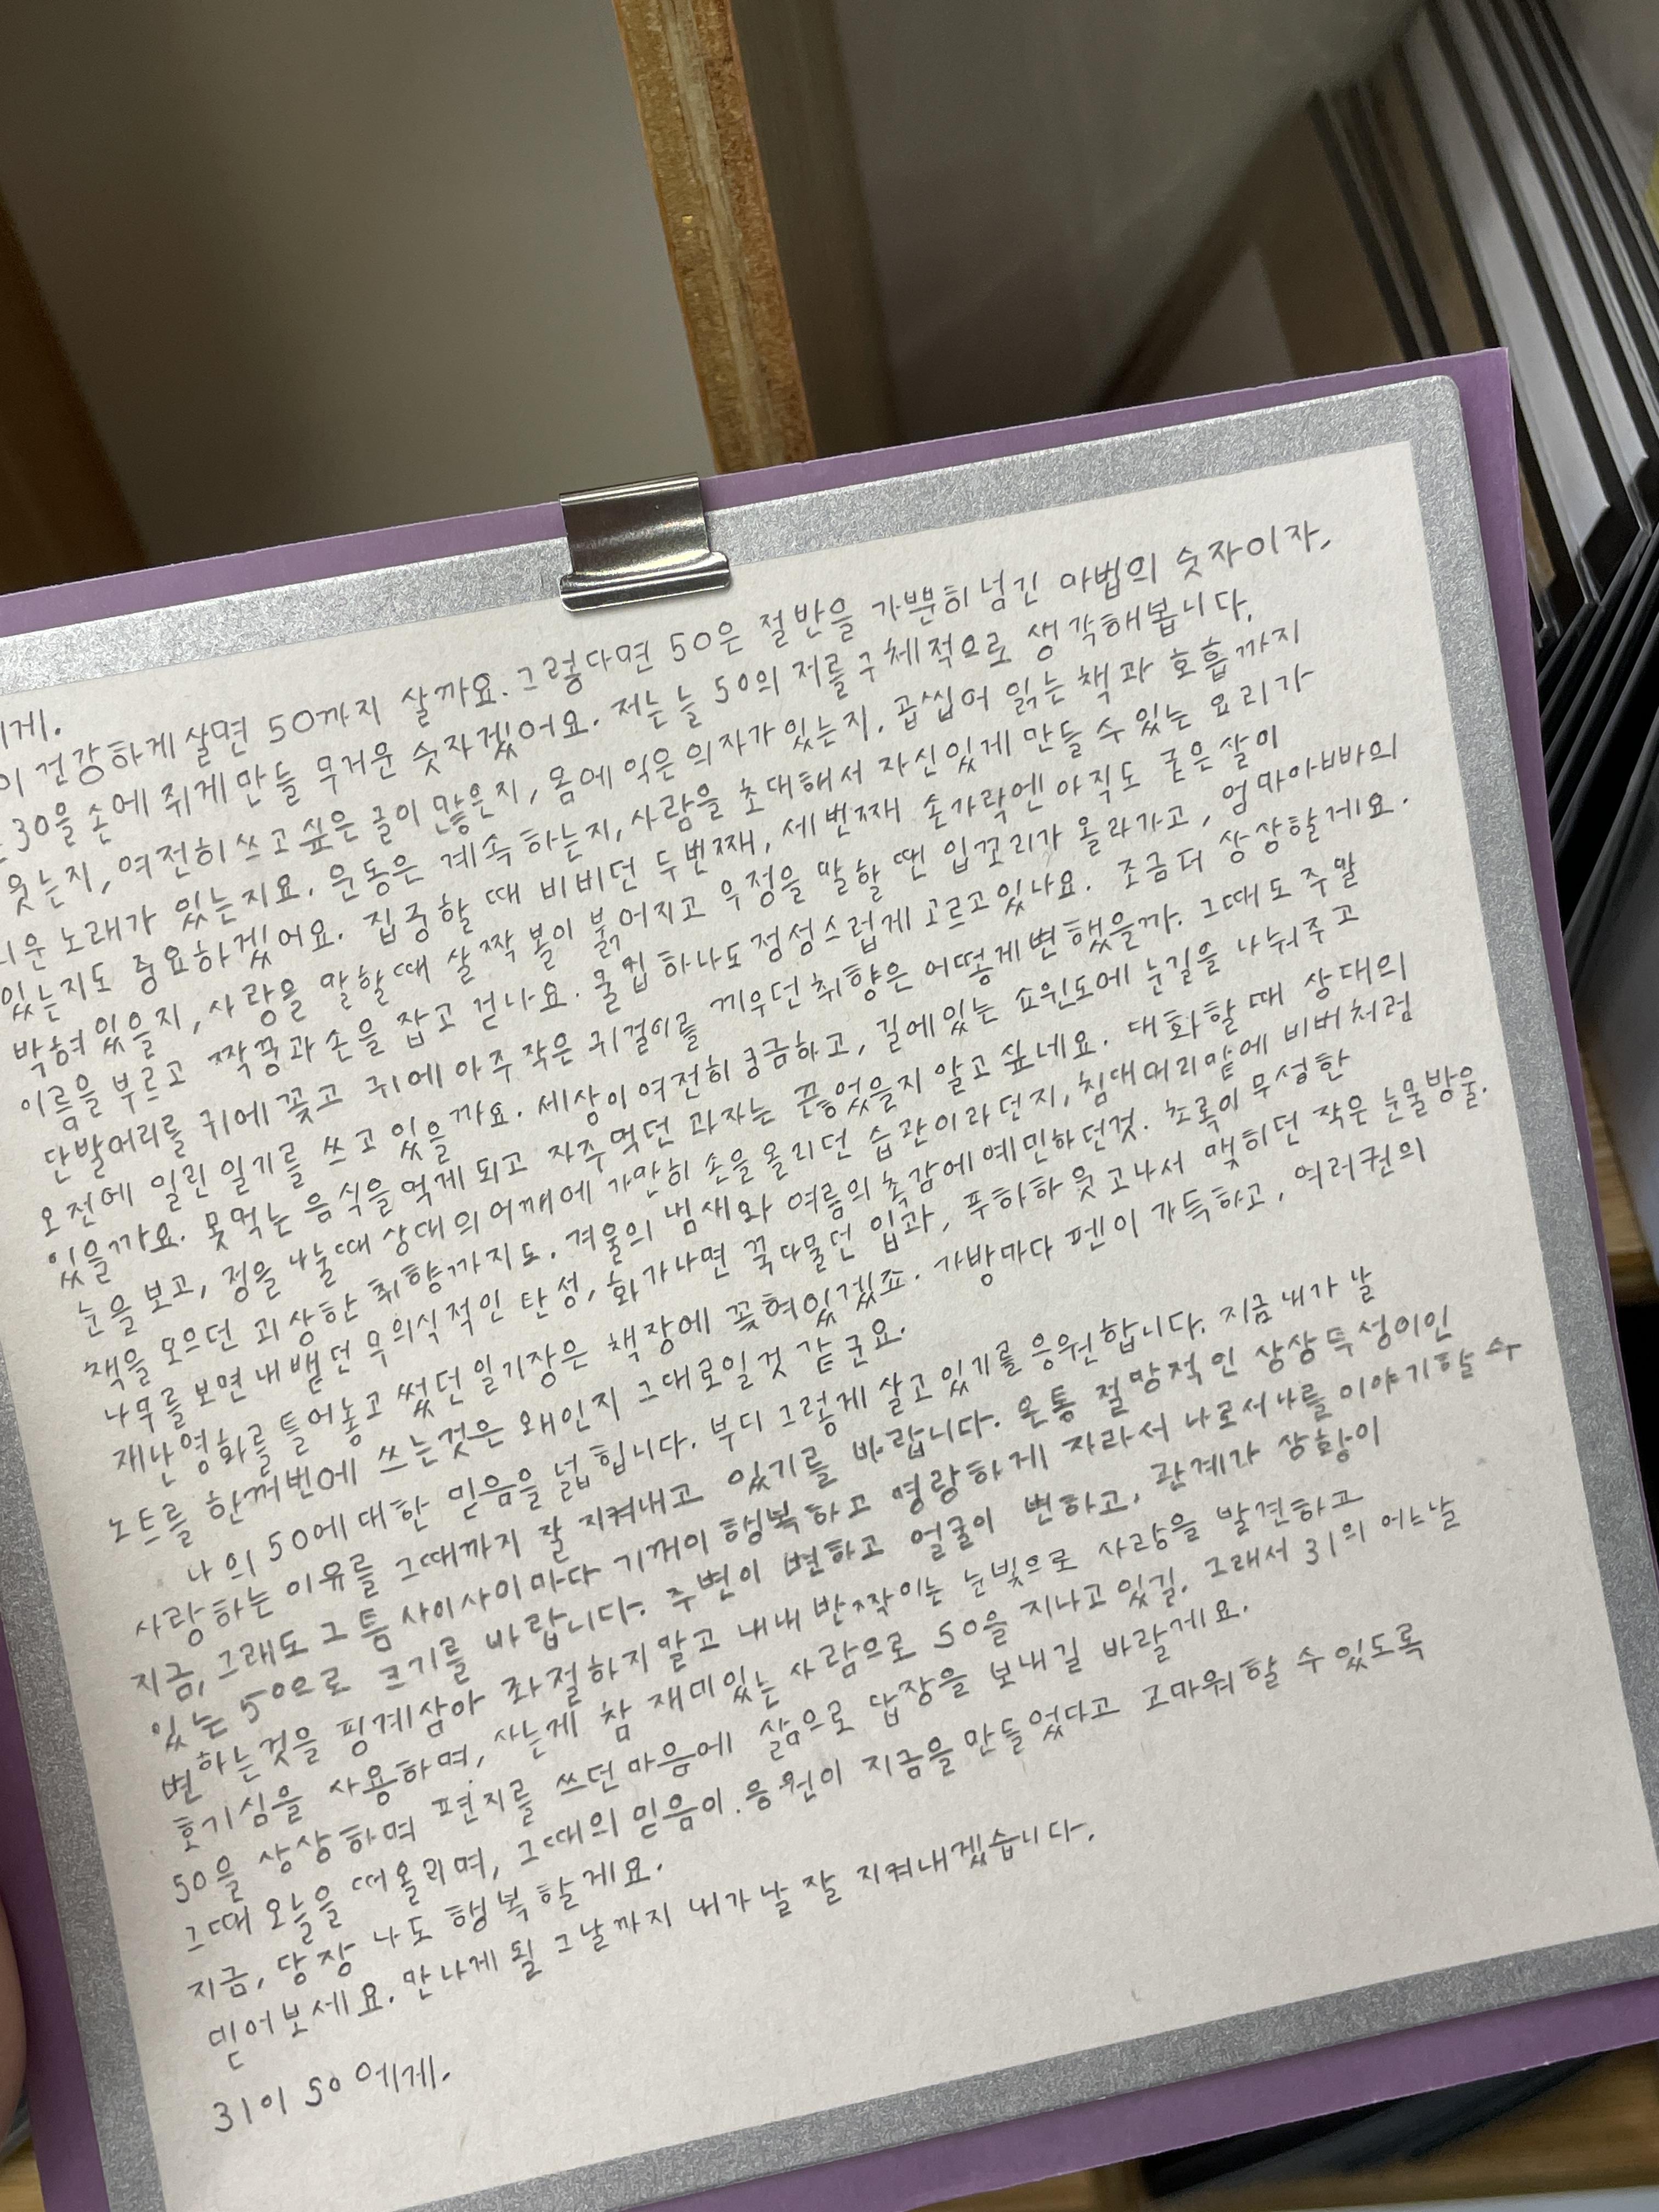 에게.
이 건강하게 살면 50까지 살까요. 그렇다면 50은 절반을 가뿐히 넘긴 마법의 숫자이자,
30을 손에 쥐게 만들 무거운 숫자겠어요. 저는 늘 50의 저를 구체적으로 생각해봅니다.
웃는지, 여전히 쓰고 싶은 글이 많은지, 몸에 익은 의자가 있는지. 곱씹어 읽는 책과 호흡까지
운 노래가 있는지요. 운동은 계속 하는지, 사람을 초대해서 자신있게 만들 수 있는 요리가
있는지도 중요하겠어요. 집중할 때 비비던 두번째, 세번째 손가락엔 아직도 굳은살이
박혀 있을지, 사랑을 말할때 살짝 볼이 붉어지고 우정을 말할 땐 입꼬리가 올라가고, 엄마아빠의
이름을 부르고 짝꿍과 손을 잡고 걷나요. 물컵 하나도 정성스럽게 고르고있나요. 조금 더 상상할게요.
단발머리를 귀에 꽂고 귀에 아주 작은 귀걸이를 끼우던 취향은 어떻게 변했을까. 그때도 주말
오전에 밀린 일기를 쓰고 있을까요. 세상이 여전히 궁금하고, 길에있는 쇼윈도에 눈길을 나눠주고
있을까요. 못먹는 음식을 먹게 되고 자주 먹던 과자는 끊었을지 알고 싶네요. 대화할 때 상대의
눈을 보고, 정을 나눌때 상대의 어깨에 가만히 손을 올리던 습관이라던지, 침대머리맡에 비버처럼
책을 모으던 괴상한 취향까지도. 겨울의 냄새와 여름의 촉감에 예민하던것. 초록이 무성한
나무를 보면 내뱉던 무의식적인 탄성, 화가나면 꾹 다물던 입과, 푸하하 웃고나서 맺히던 작은 눈물방울.
재난영화를 틀어놓고 썼던 일기장은 책장에 꽂혀있겠죠. 가방마다 펜이 가득하고, 여러권의
노트를 한꺼번에 쓰는것은 왜인지 그대로일것 같군요.
나의 50에 대한 믿음을 넓힙니다. 부디 그렇게 살고 있기를 응원합니다. 지금 내가 날
사랑하는 이유를 그때까지 잘 지켜내고 있기를 바랍니다. 온통 절망적인 상상투성이인
지금, 그래도 그 틈 사이사이마다 기꺼이 행복하고 명랑하게 자라서 나로서 나를 이야기할 수
있는 50으로 크기를 바랍니다. 주변이 변하고 얼굴이 변하고, 관계가 상황이
변하는것을 핑계삼아 좌절하지 말고 내내 반짝이는 눈빛으로 사랑을 발견하고
호기심을 사용하며, 사는게 참 재미있는 사람으로 50을 지나고 있길. 그래서 31의 어느날
50을 상상하며 편지를 쓰던 마음에 삶으로 답장을 보내길 바랄게요.
그때 오늘을 떠올리며, 그때의 믿음이. 응원이 지금을 만들었다고 고마워할 수 있도록
지금, 당장 나도 행복할게요.
믿어보세요. 만나게 될 그날까지 내가 날 잘 지켜내겠습니다.
31이 50에게.